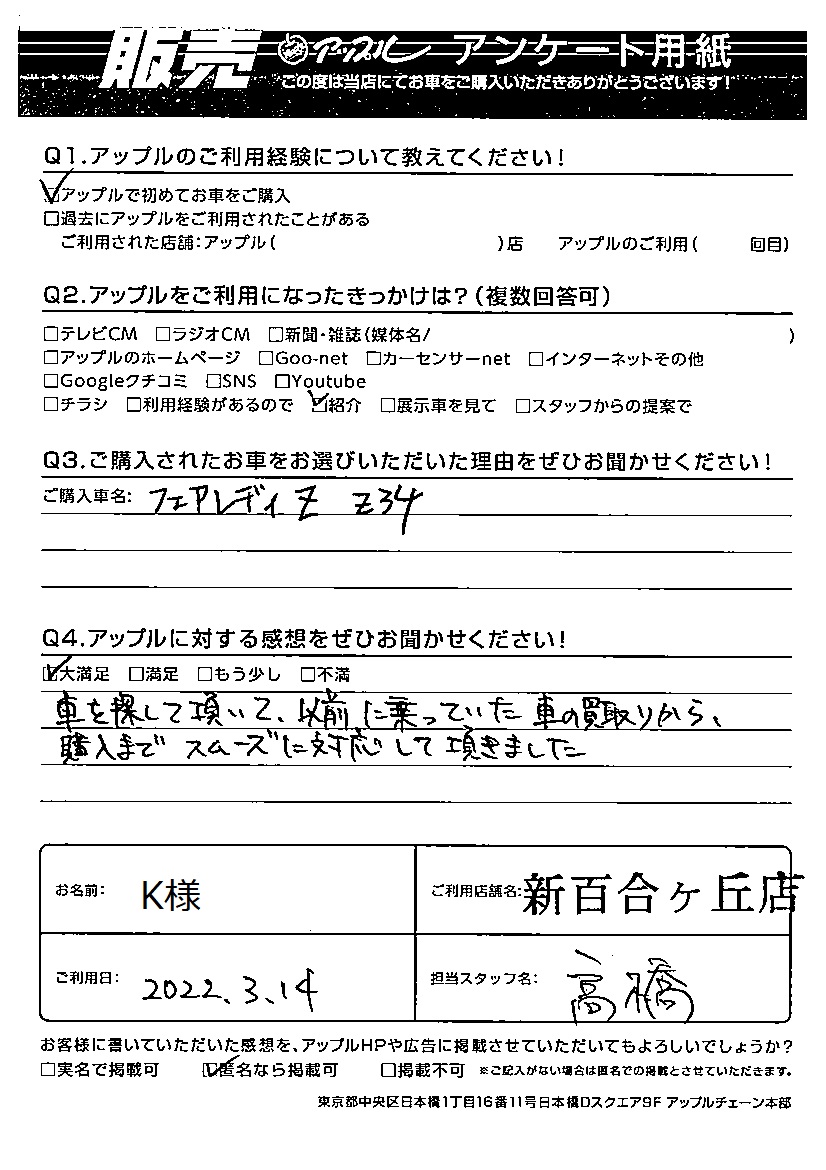 販売 アップル アンケート用紙
この度は当店にてお車をご購入いただきありがとうございます!
Q1.アップルのご利用経験について教えてください!
☑アップルで初めてお車をご購入
□過去にアップルをご利用されたことがある
ご利用された店舗:アップル( )店 アップルのご利用( 回目)
Q2.アップルをご利用になったきっかけは?(複数回答可)
□テレビCM □ラジオCM □新聞・雑誌(媒体名/ )
□アップルのホームページ □Goo-net □カーセンサーnet □インターネットその他
□Googleクチコミ □SNS □Youtube
□チラシ □利用経験があるので ☑紹介 □展示車を見て □スタッフからの提案で
Q3.ご購入されたお車をお選びいただいた理由をぜひお聞かせください!
ご購入車名: フェアレディZ Z34
Q4.アップルに対する感想をぜひお聞かせください!
☑大満足 □満足 □もう少し □不満
車を探して頂いて、以前に乗っていた車の買取りから、
購入までスムーズに対応して頂きました
お名前: K様 ご利用店舗名: 新百合ヶ丘店
ご利用日: 2022.3.14 担当スタッフ名: 高橋
お客様に書いていただいた感想を、アップルHPや広告に掲載させていただいてもよろしいでしょうか?
□実名で掲載可 ☑匿名なら掲載可 □掲載不可 ※ご記入がない場合は匿名での掲載とさせていただきます。
東京都中央区日本橋1丁目16番11号日本橋Dスクエア9F アップルチェーン本部